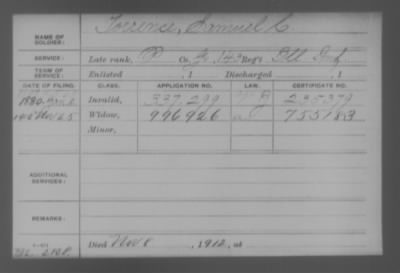 NAME OF SOLDIER: Torrence, Samuel C
SERVICE: Late rank, P Co. G, 143 Reg't Ill Inf
TERM OF SERVICE: Enlisted , 1 Discharged , 1
DATE OF FILING. CLASS. APPLICATION NO. LAW. CERTIFICATE NO.
1880. Invalid, 337.299 235379
Nov 25 Widow, 996926 755183
Minor,
ADDITIONAL SERVICES:
REMARKS:
Died Nov 8, 1912, at